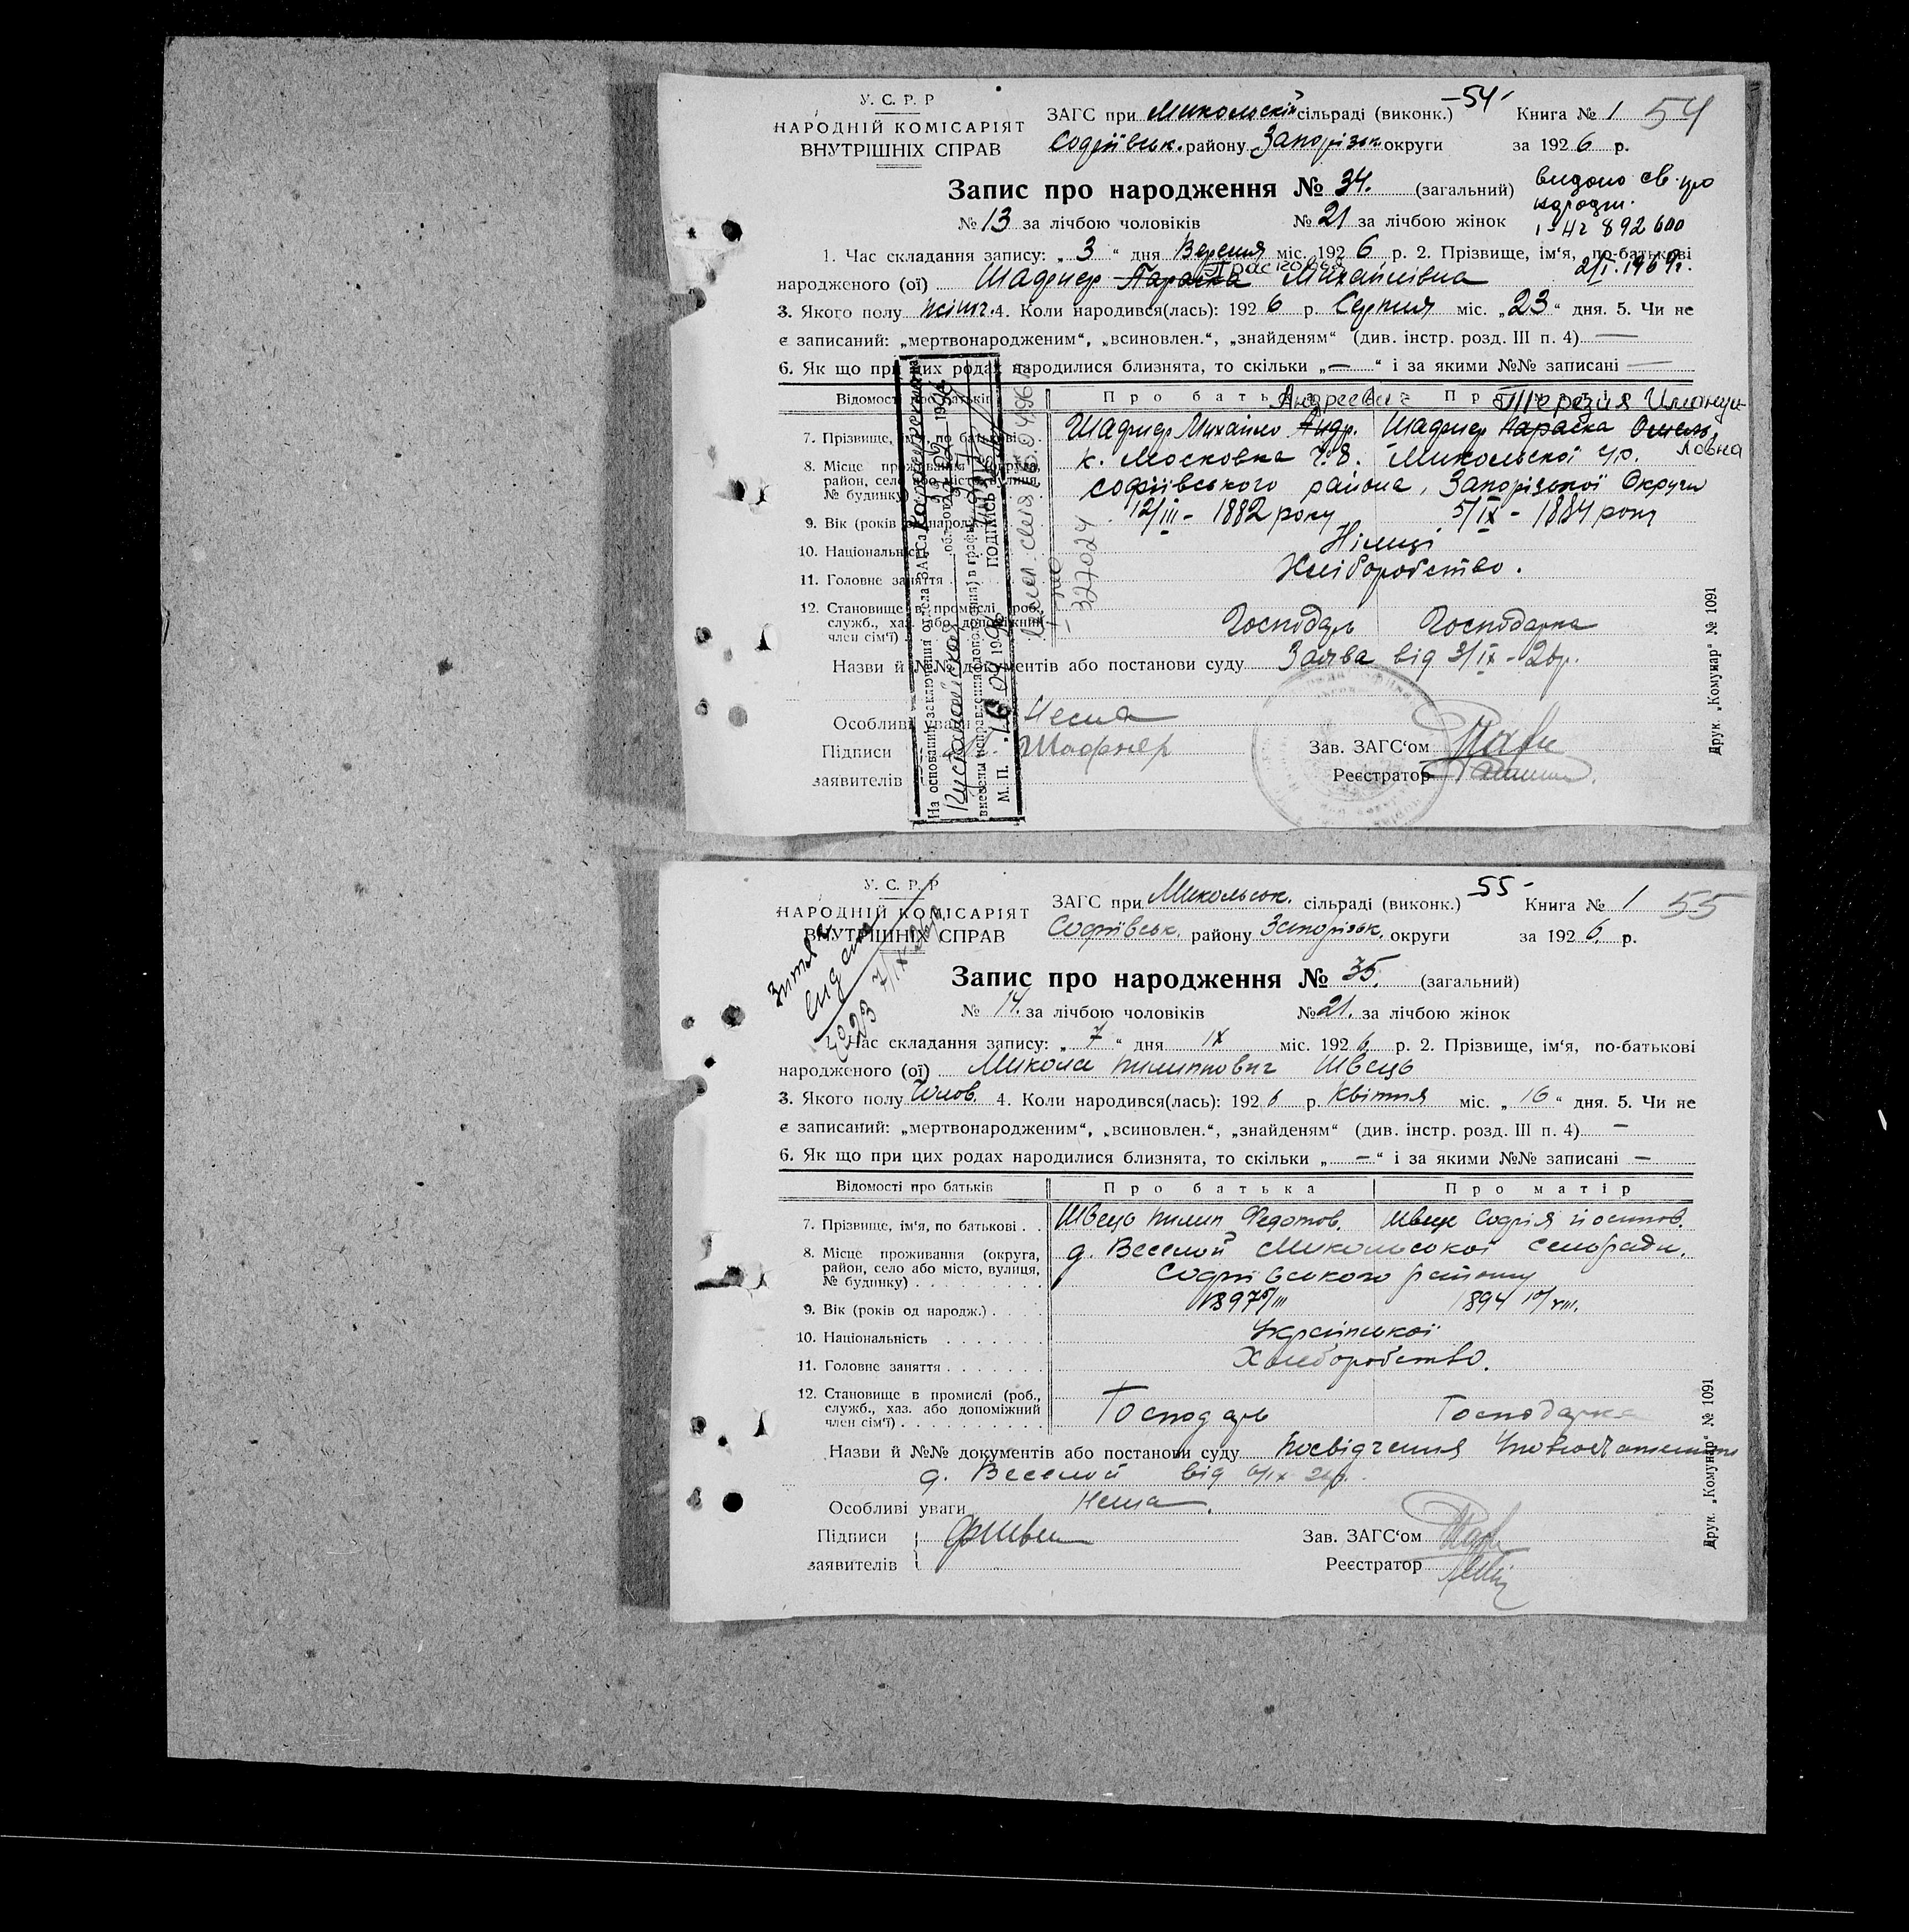 У. С. Р. Р
НАРОДНІЙ КОМІСАРІЯТ
ВНУТРІШНІХ СПРАВ
ЗАГС при Микольській сільраді (виконк.) -54- Книга № 1 54
Софіївськ. району Запорізьк округи за 1926 р.
Запис про народження № 34. (загальний)
видано св. про
народж.
892600
2/I.1969г.
№ 13 за лічбою чоловіків № 21 за лічбою жінок
1. Час складання запису: „ 3 “ дня Вересня міс. 1926 р. 2. Прізвище, ім‘я, по-батькові
Прасковья
народженого (ої) Шафнер Параска Михайлівна
3. Якого полу жіноч. 4. Коли народився(лась): 1926 р. Серпня міс. „23“ дня. 5. Чи не
є записаний: „мертвонародженим“, „всиновлен.“, „знайденям“ (див. інстр. розд. III п. 4) —
6. Як що при цих родах народилися близнята, то скільки „—“ і за якими №№ записані —
Відомості про батьків
Андреевич Терезия
7. Прізвище, ім‘я, по батькові Шафнер Михайло Андр. Шафнер Параска Омель.
8. Місце проживання (округа, район, село або місто, вулиця, № будинку) к. Московка Микольської с/р.
Софіївського района, Запорізької Округи
9. Вік (років од народж.) 12/III - 1882 року 5/IX - 1884 року
10. Національність Німці
11. Головне заняття Хліборобство.
12. Становище в промислі (роб., служб., хаз. або допоміжний член сім‘ї) Господарь Господарка
Назви й №№ документів або постанови суду Заява від 3/IX - 26р.
Особливі уваги Нема
Підписи Шафнер Зав. ЗАГС‘ом
заявителів Реєстратор
На основании заключения отдела ЗАГСа
Кустанайской
М. П. 16 04 1996 ПОДПИСЬ
327024
Друк. „Комунар“ № 1091
У. С. Р. Р
НАРОДНІЙ КОМІСАРІЯТ
ВНУТРІШНІХ СПРАВ
ЗАГС при Микольськ. сільраді (виконк.) 55- Книга № 1 55
Софіївськ. району Запорізьк. округи за 1926 р.
Запис про народження № 35. (загальний)
№ 14. за лічбою чоловіків № 21. за лічбою жінок
Час складання запису: „ 7 “ дня IX міс. 1926 р. 2. Прізвище, ім‘я, по-батькові
народженого (ої) Микола Пилиппович Швець
3. Якого полу Чолов. 4. Коли народився(лась): 1926 р. Квітня міс. „ 16 “ дня. 5. Чи не
є записаний: „мертвонародженим“, „всиновлен.“, „знайденям“ (див. інстр. розд. III п. 4) —
6. Як що при цих родах народилися близнята, то скільки „—“ і за якими №№ записані —
Відомості про батьків Про батька Про матір
7. Прізвище, ім‘я, по батькові Швець Пилип Федотов. Швець Софія Йосипов.
8. Місце проживання (округа, район, село або місто, вулиця, № будинку) д. Веселий Микольської сельради.
Софіївського району
9. Вік (років од народж.) 1897 5/III 1894 10/VIII.
10. Національність Української
11. Головне заняття Хліборобство.
12. Становище в промислі (роб., служб., хаз. або допоміжний член сім‘ї) Господарь Господарка
Назви й №№ документів або постанови суду Посвідчення
д. Веселой від 26р.
Особливі уваги Нема.
Підписи Зав. ЗАГС‘ом
заявителів Реєстратор
Друк. „Комунар“ № 1091